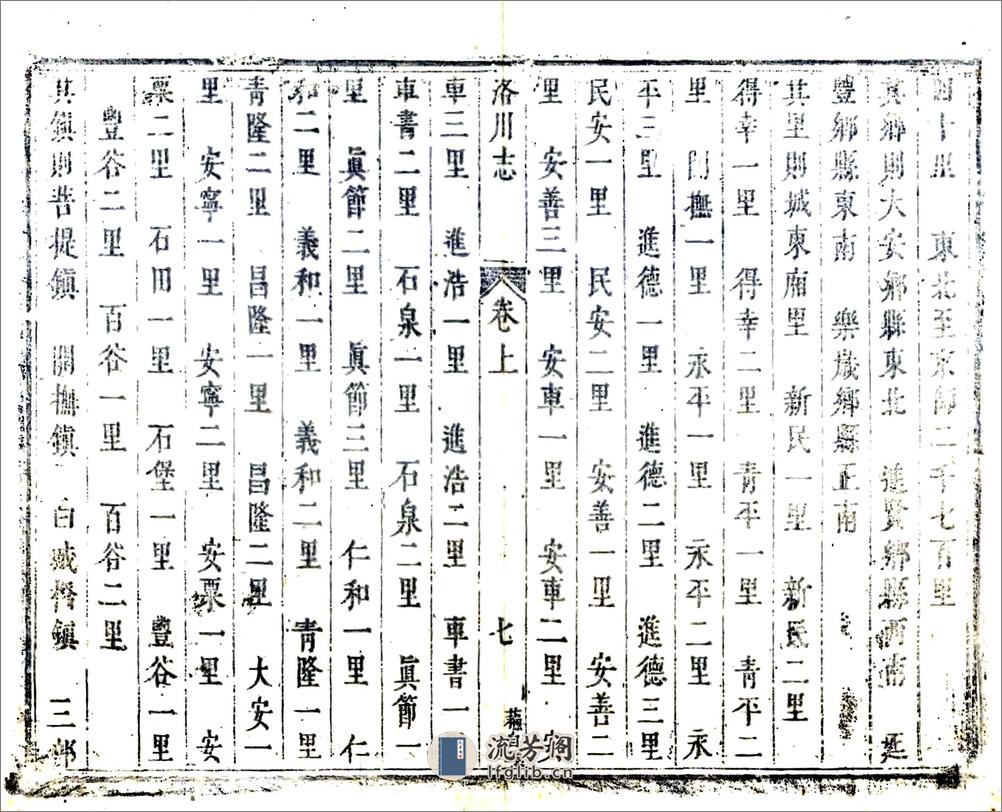 四十里　東北至京師二千七百里
其鄉則大安鄉縣東北　進賢鄉縣西南　延
豐鄉縣東南　樂歲鄉縣正南
其里則城東廂里　新民一里　新民二里
得幸一里　得幸二里　青平一里　青平二
里　開撫一里　永平一里　永平二里　永
平三里　進德一里　進德二里　進德三里
民安一里　民安二里　安善一里　安善二
里　安善三里　安車一里　安車二里　安
洛川志　卷上　七
車三里　進浩一里　進浩二里　車書一
車書二里　石泉一里　石泉二里　眞節一
里　眞節二里　眞節三里　仁和一里　仁
和二里　義和一里　義和二里　青隆一里
青隆二里　昌隆一里　昌隆二里　大安一
里　安寧一里　安寧二里　安栗一里　安
栗二里　石田一里　石堡一里　豐谷一里
豐谷二里　百谷一里　百谷二里
其鎮則菩提鎮　開撫鎮　白城橋鎮　三郎
流芳阁
lfglib.cn